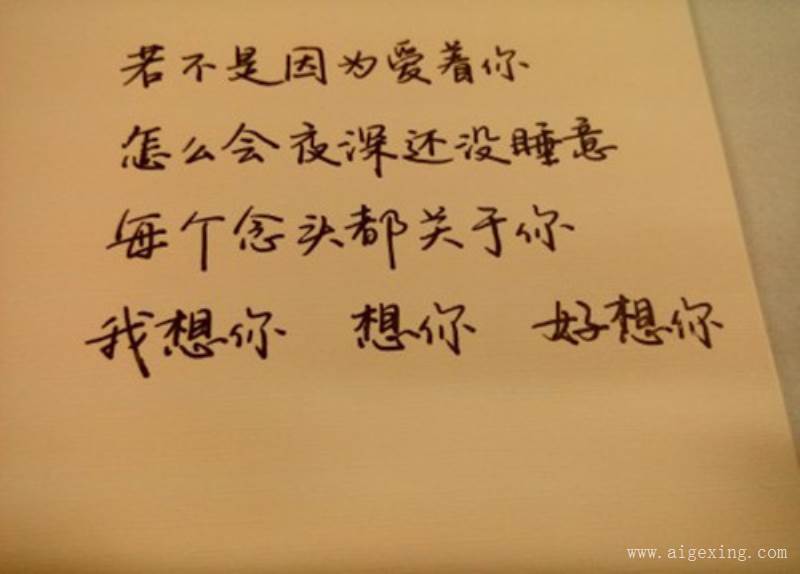 若不是因为爱着你
怎么会夜深还没睡意
每个念头都关于你
我想你 想你 好想你
www.aigexing.com